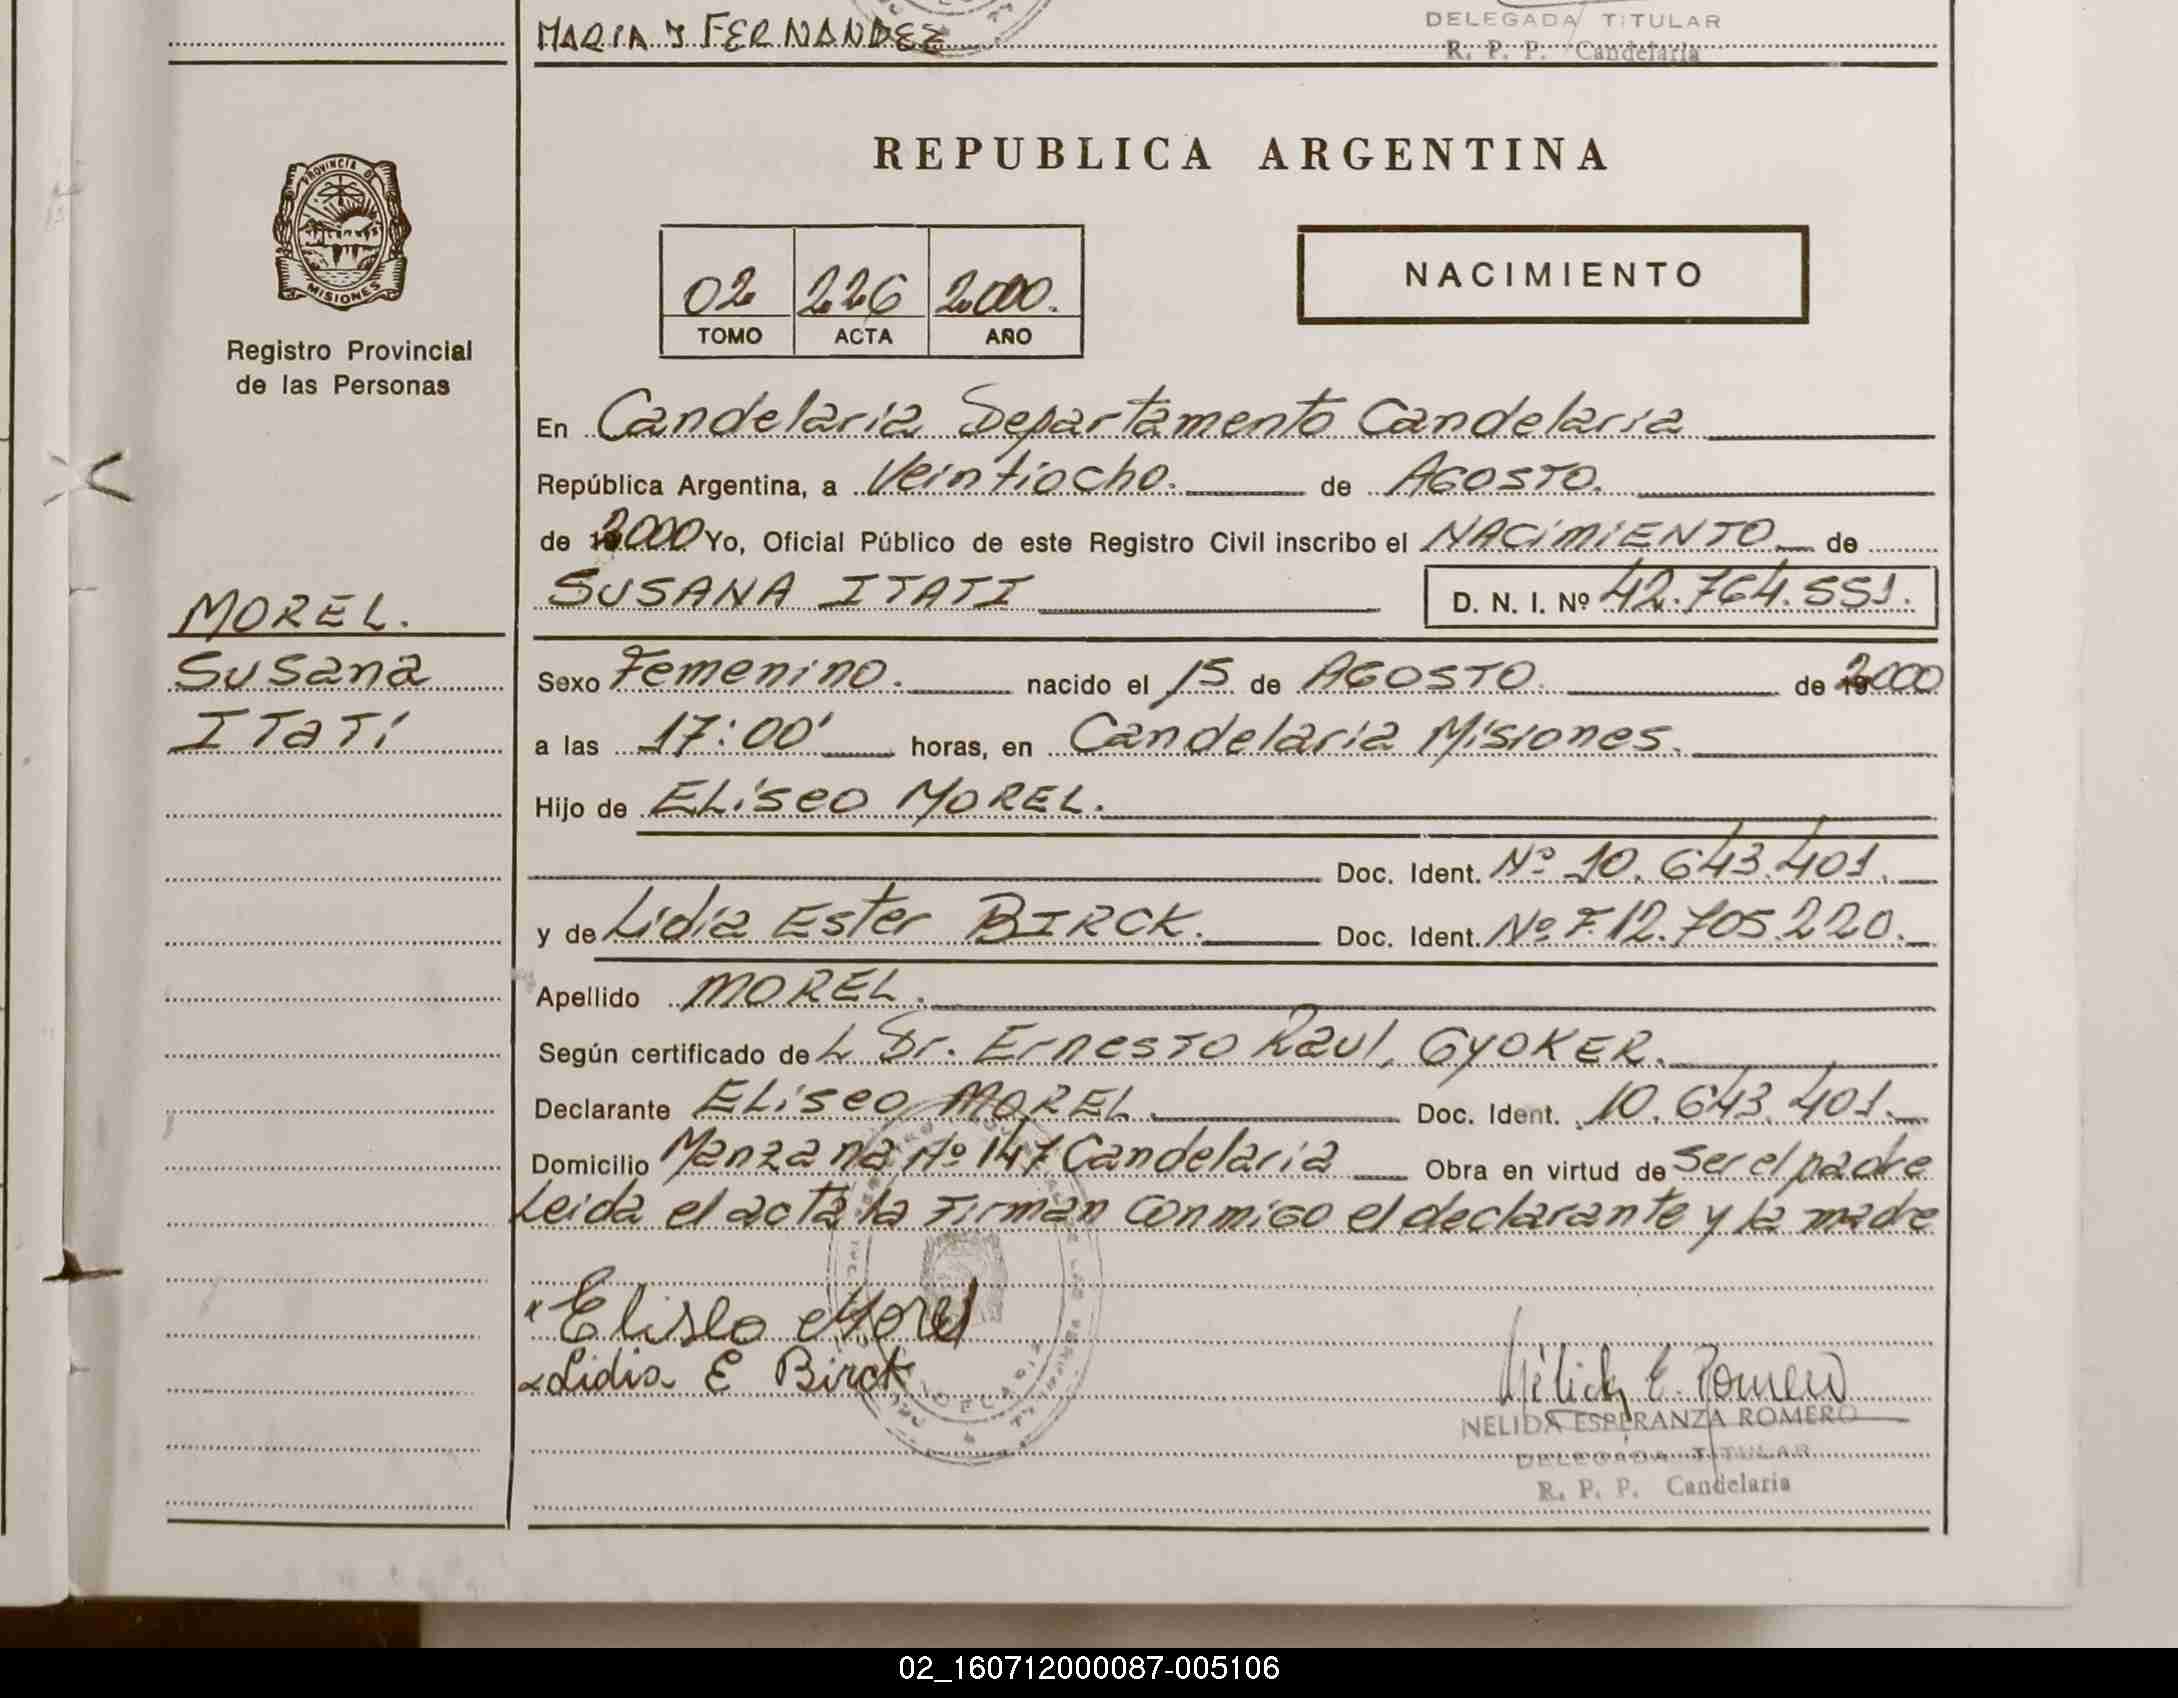 MARIA J FERNANDEZ
DELEGADA TITULAR
R. P. P. Candelaria
PROVINCIA DE
MISIONES
Registro Provincial
de las Personas
REPUBLICA ARGENTINA
02 226 2000.
TOMO ACTA AÑO
NACIMIENTO
En Candelaria Departamento Candelaria
República Argentina, a Veintiocho. de AGOSTO.
de 2000 Yo, Oficial Público de este Registro Civil inscribo el NACIMIENTO de
SUSANA ITATI D. N. I. Nº 42.764.551.
MOREL.
Susana
ITATí
Sexo Femenino. nacido el 15 de AGOSTO. de 2000
a las 17:00' horas, en Candelaria Misiones.
Hijo de ELiseo MOREL.
Doc. Ident. Nº 10.643.401.
y de Lidia Ester BIRCK. Doc. Ident. Nº F.12.705.220.
Apellido MOREL.
Según certificado de L Dr. Ernesto Raul, GYOKER.
Declarante ELiseo MOREL. Doc. Ident. 10.643.401.
Domicilio Manzana Nº 147 Candelaria Obra en virtud de ser el padre
Leida el acta la Firman conmigo el declarante y la madre
Eliseo Morel
Lidia E Birck
Nélida E. Romero
NELIDA ESPERANZA ROMERO
DELEGADA TITULAR
R. P. P. Candelaria
02_160712000087-005106